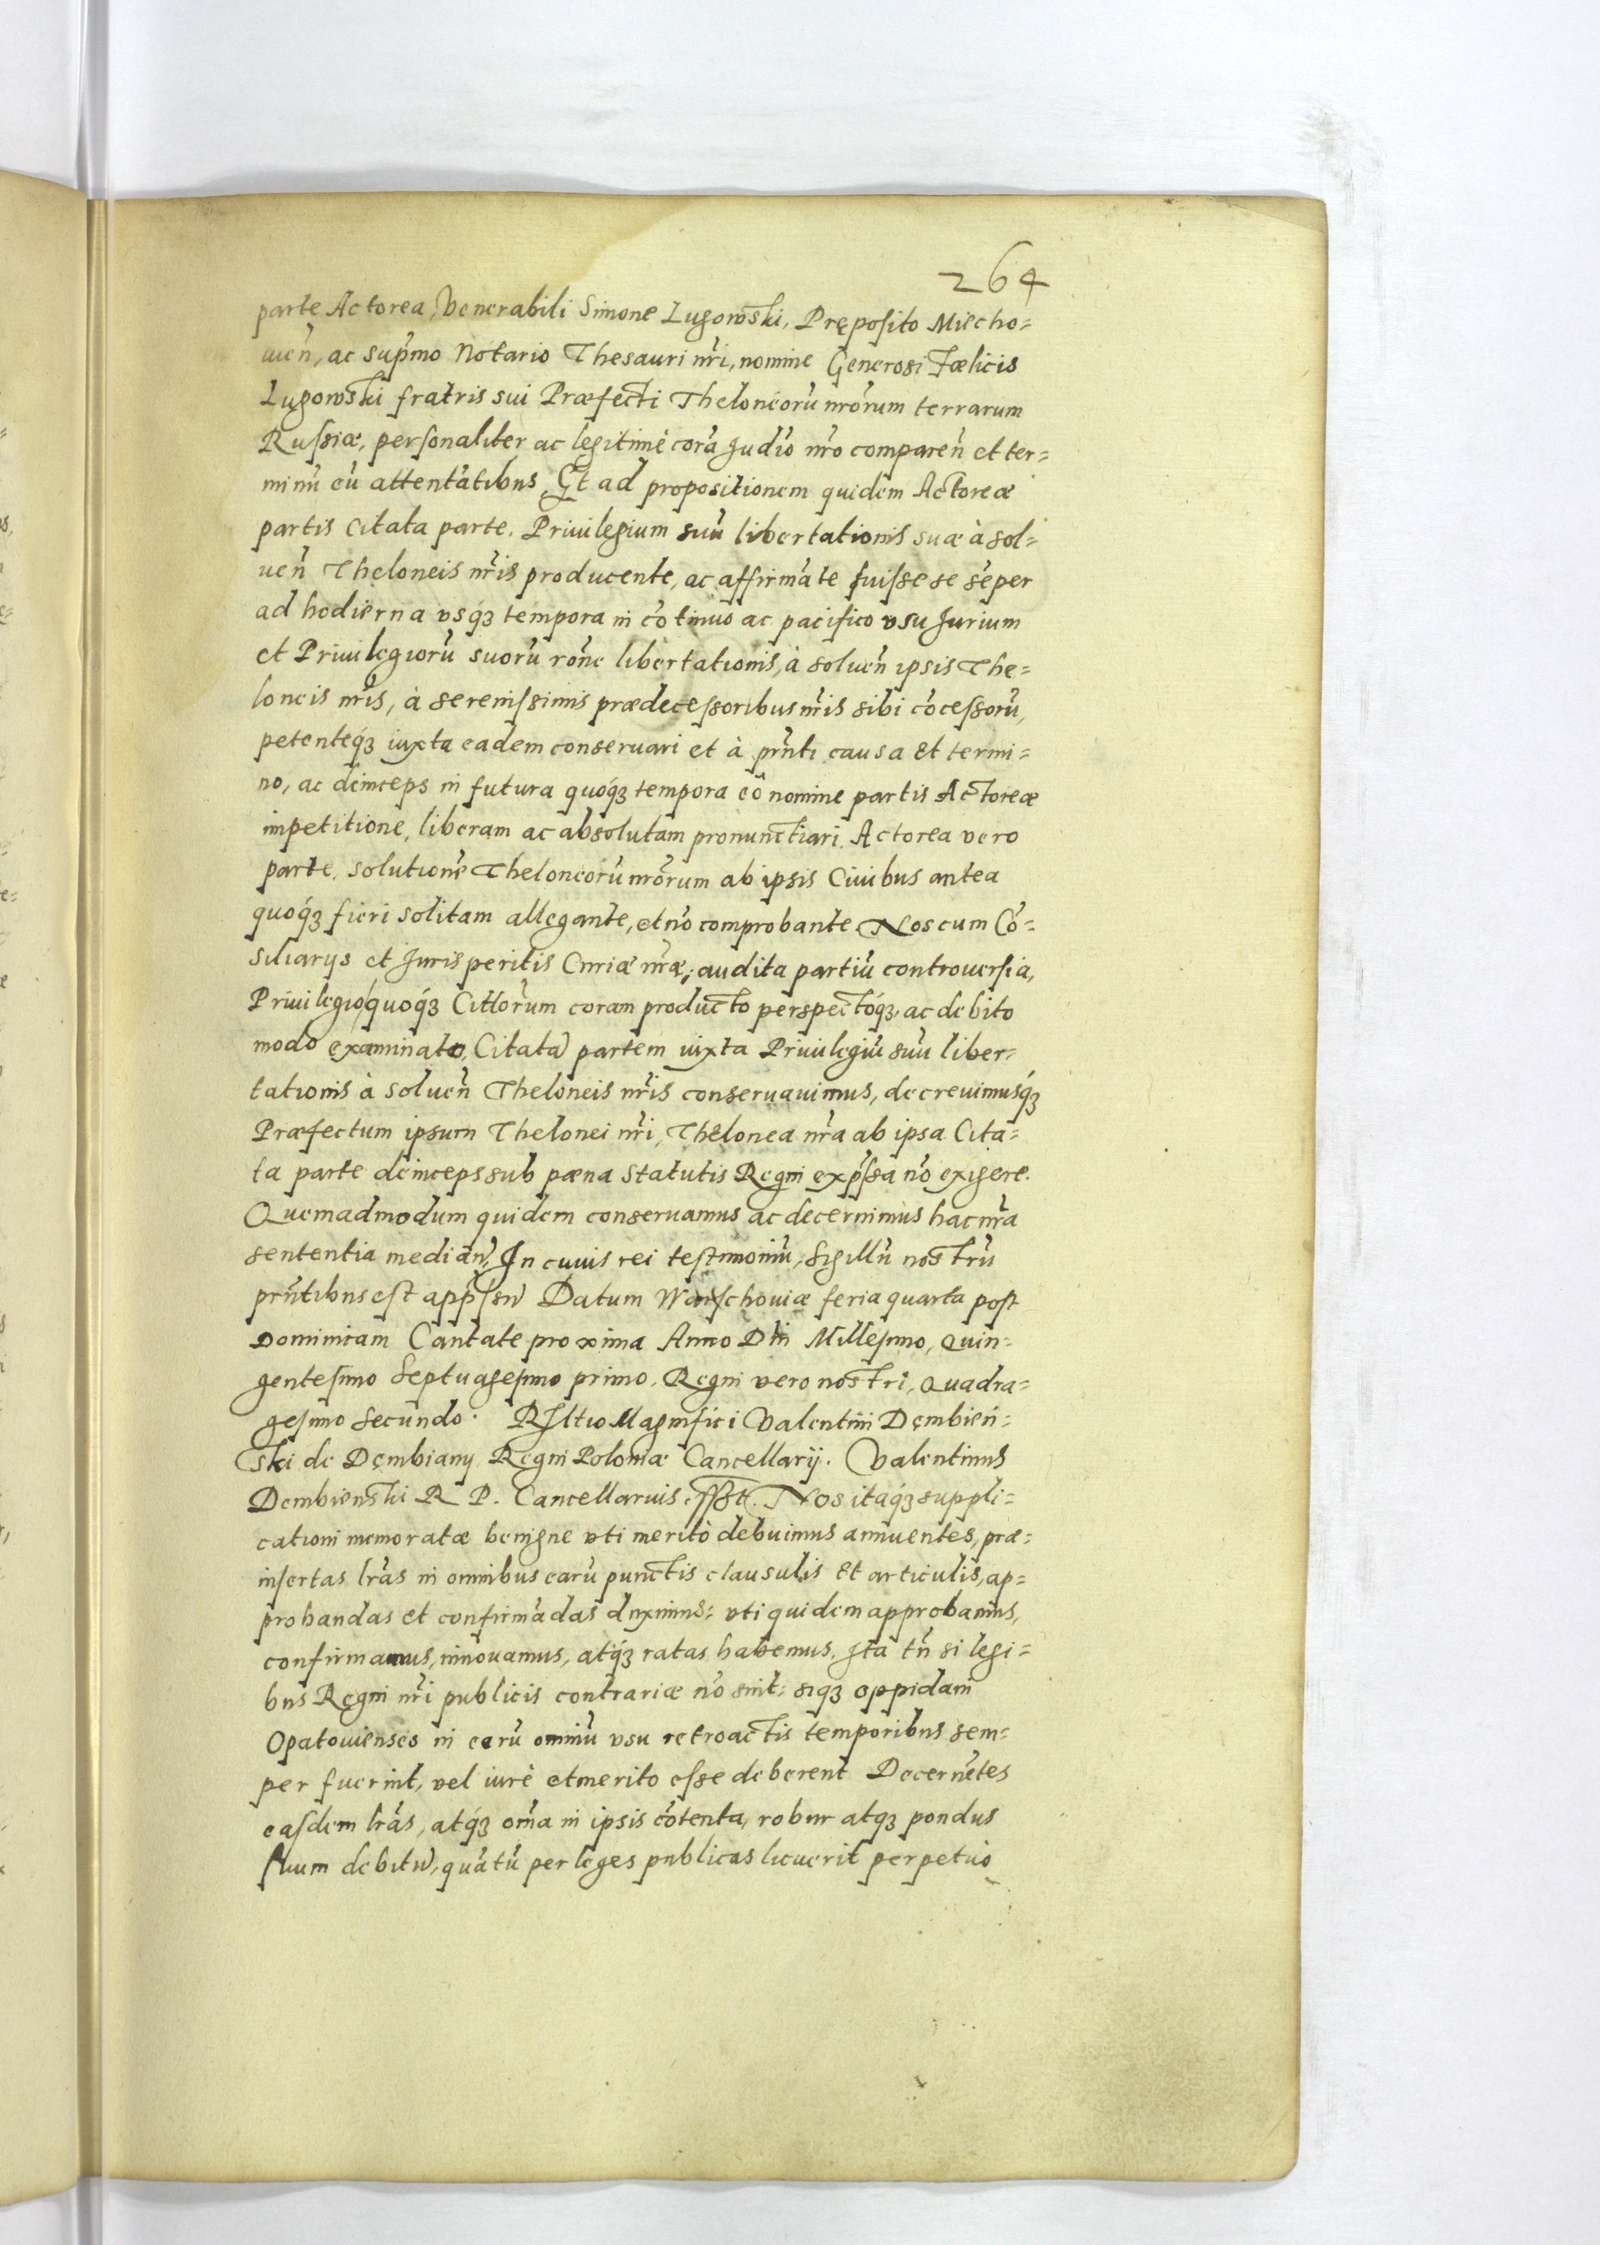 264
parte Actorea, Venerabili Simone Lugowski, Pręposito Miecho=
uien̄, ac sup̄mo Notario Thesauri nr̄i, nomine Generosi Fœlicis
Lugowski fratris sui Præfecti Theloneorū nr̄orum terrarum
Russiæ, personaliter ac legitimè corā Judio nr̄o comparen̄ et ter=
minū eū attentātibus, Et ad propositionem quidem Actoreæ
partis citata parte, Priuilegium suū libertationis suæ à sol=
uen̄ Theloneis nr̄is producente, ac affirmāte fuisse se sēper
ad hodierna vsq́ȝ tempora in cōtinuo ac pacifico vsu Jurium
et Priuilegiorū suorū rōne libertationis, à soluen̄ ipsis The=
loneis nr̄is, à serenissimis prædecessoribus nr̄is sibi cōcessorū,
petenteq́ȝ iuxta eadem conseruari et à pn̄ti causa et termi=
no, ac deinceps in futura quoq́ȝ tempora eô nomine partis Actoreæ
impetitione, liberam ac absolutam pronunctiari. Actorea vero
parte, solutionē Theloneorū nr̄orum ab ipsis Ciuibus antea
quoq́ȝ fieri solitam allegante, et nō comprobante. Nos cum Cō=
siliarys et Jurisperitis Curiæ nr̄æ, audita partiū controuersia,
Priuilegio quoq́ȝ Citt̄orum coram producto perspectoq́ȝ, ac debito
modo examinato, Citatā partem iuxta Priuilegiū suū liber=
tationis à soluen̄ Theloneis nr̄is conseruauimus, decreuimusq́ȝ
Præfectum ipsum Thelonei nr̄i, Thelonea nr̄a ab ipsa Cita=
ta parte deinceps sub pæna statutis Regni exp̄ssa nō exigere.
Quemadmodum quidem conseruamus ac decernimus hac nr̄a
sententia median̄, In cuius rei testimoniū, Sigillū nostrū
pn̄tibus est app̄ssū Datum Warschouiæ feria quarta post
Dominicam Cantate proxima Anno Dn̄i Millesimo, Quin=
gentesimo Septuagesimo primo, Regni vero nostri, Quadra=
gesimo secundo. Rl̄tio Magnifici Valentini Dęmbień=
ski de Dęmbiany Regni Poloniæ Cancellarij. Valentinus
Dembienski R P. Cancellarius sst. Nos itaq́ȝ suppli=
cationi memoratæ benigne vti meritò debuimus annuentes, præ=
insertas lr̄as in omnibus earū punctis clausulis et articulis, ap=
probandas et confirmādas duximus: vti quidem approbamus,
confirmamus, innouamus, atq́ȝ ratas habemus, Jta tn̄ si legi=
bus Regni nr̄i publicis contrariæ nō sint: siqȝ oppidani
Opatouienses in earū omniū vsu retroactis temporibus sem=
per fuerint, vel iurè et merito esse deberent Decernētes
easdem lr̄as, atq́ȝ om̄a in ipsis cōtenta, robur atqȝ pondus
suum debitū, quātū per leges publicas licuerit perpetuò